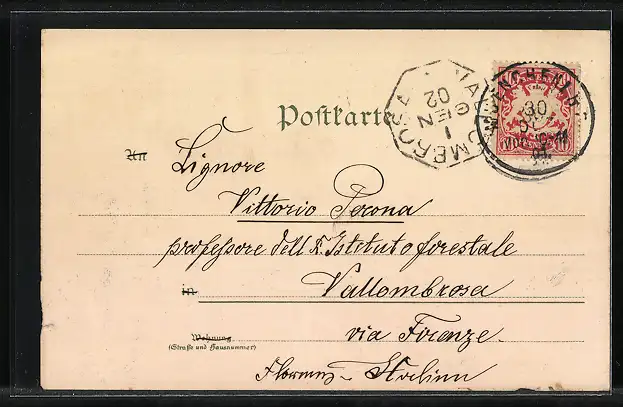 Postkarte
VALLOMBROSA
1 GEN 02
MUENCHEN
30
An Signore
Vittorio Perona
professore dell R. Istituto forestale
in Vallombrosa
Wohnung
(Straße und Hausnummer)
via Firenze.
Florenz - Italien